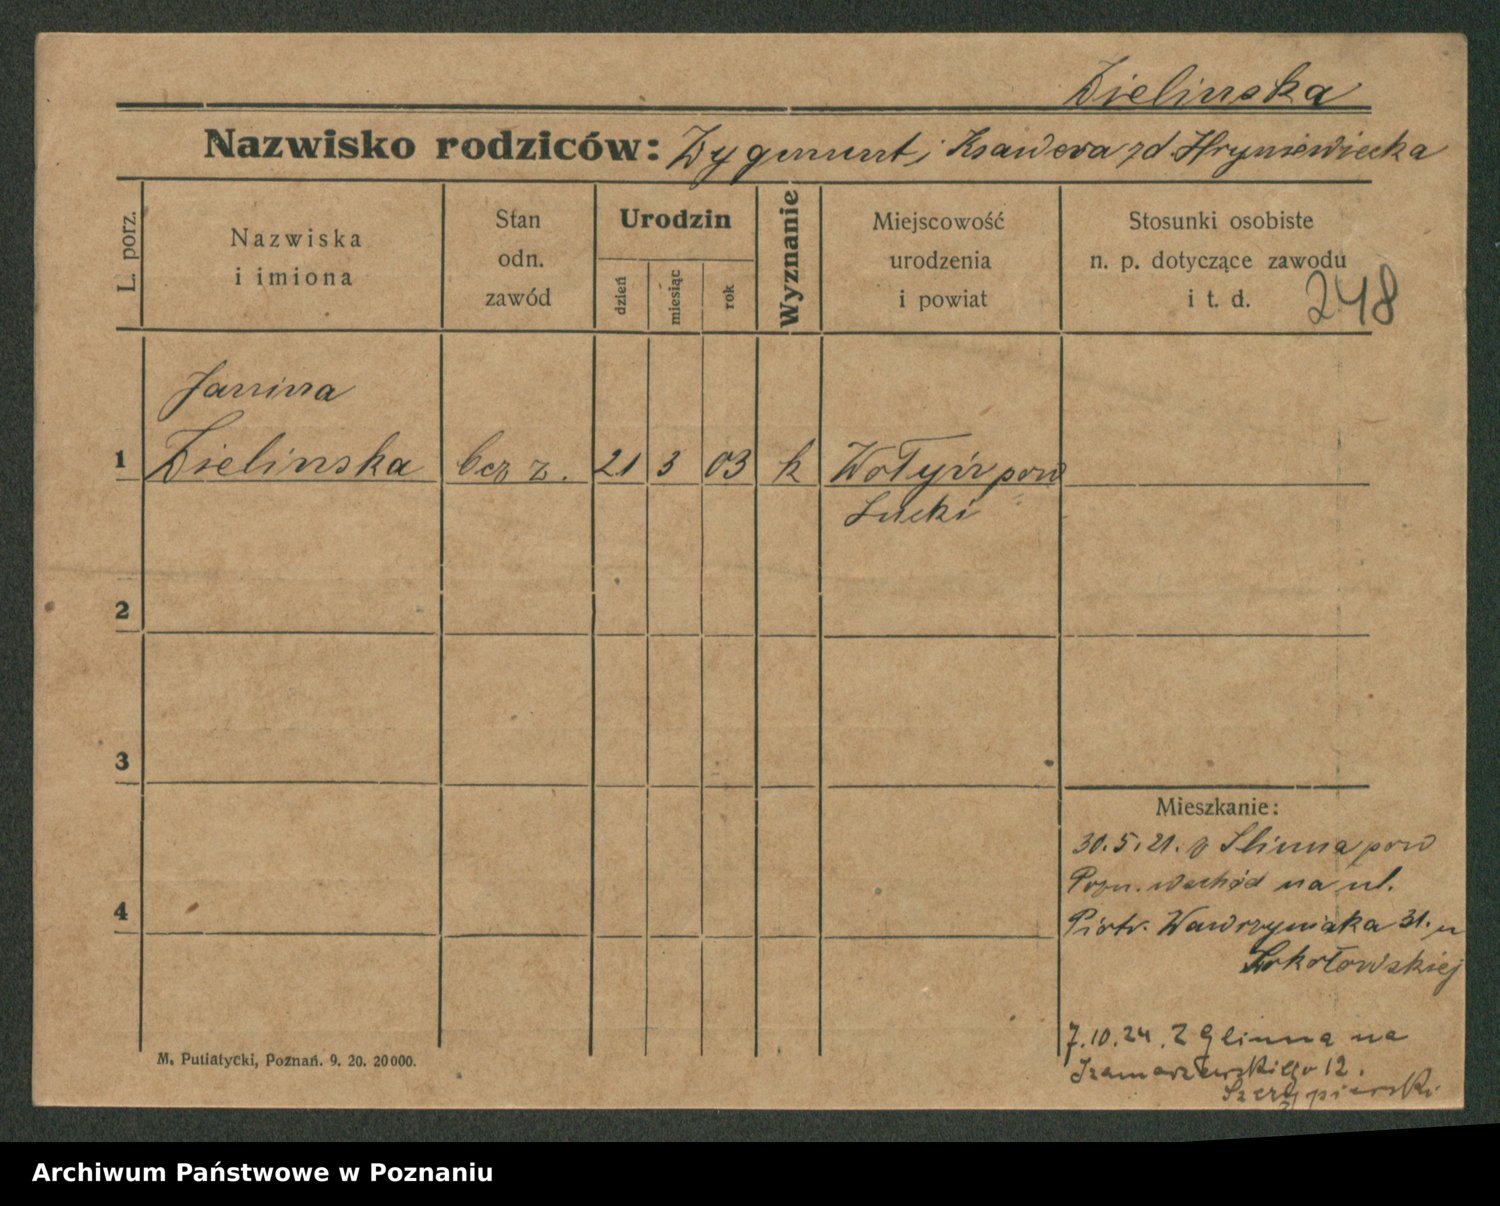 Zielinska
Nazwisko rodziców: Zygmunt i Ksawera zd. Hryniewiecka
L. porz.
Nazwiska
i imiona
Stan
odn.
zawód
Urodzin
dzień
miesiąc
rok
Wyznanie
Miejscowość
urodzenia
i powiat
Stosunki osobiste
n. p. dotyczące zawodu
i t. d.
248
Janina
1 Zielinska bez z. 21 3 03 k Wołyń pow
Łucki
2
3
4
Mieszkanie:
30.5.21. z Slinna pow
Pozn. wschód na ul.
Piotr. Wawrzyniaka 31. u
Sokołowskiej
7.10.24. Z Glinna na
Szamarzewskiego 12.
M. Putiatycki, Poznań. 9. 20. 20000.
Archiwum Państwowe w Poznaniu